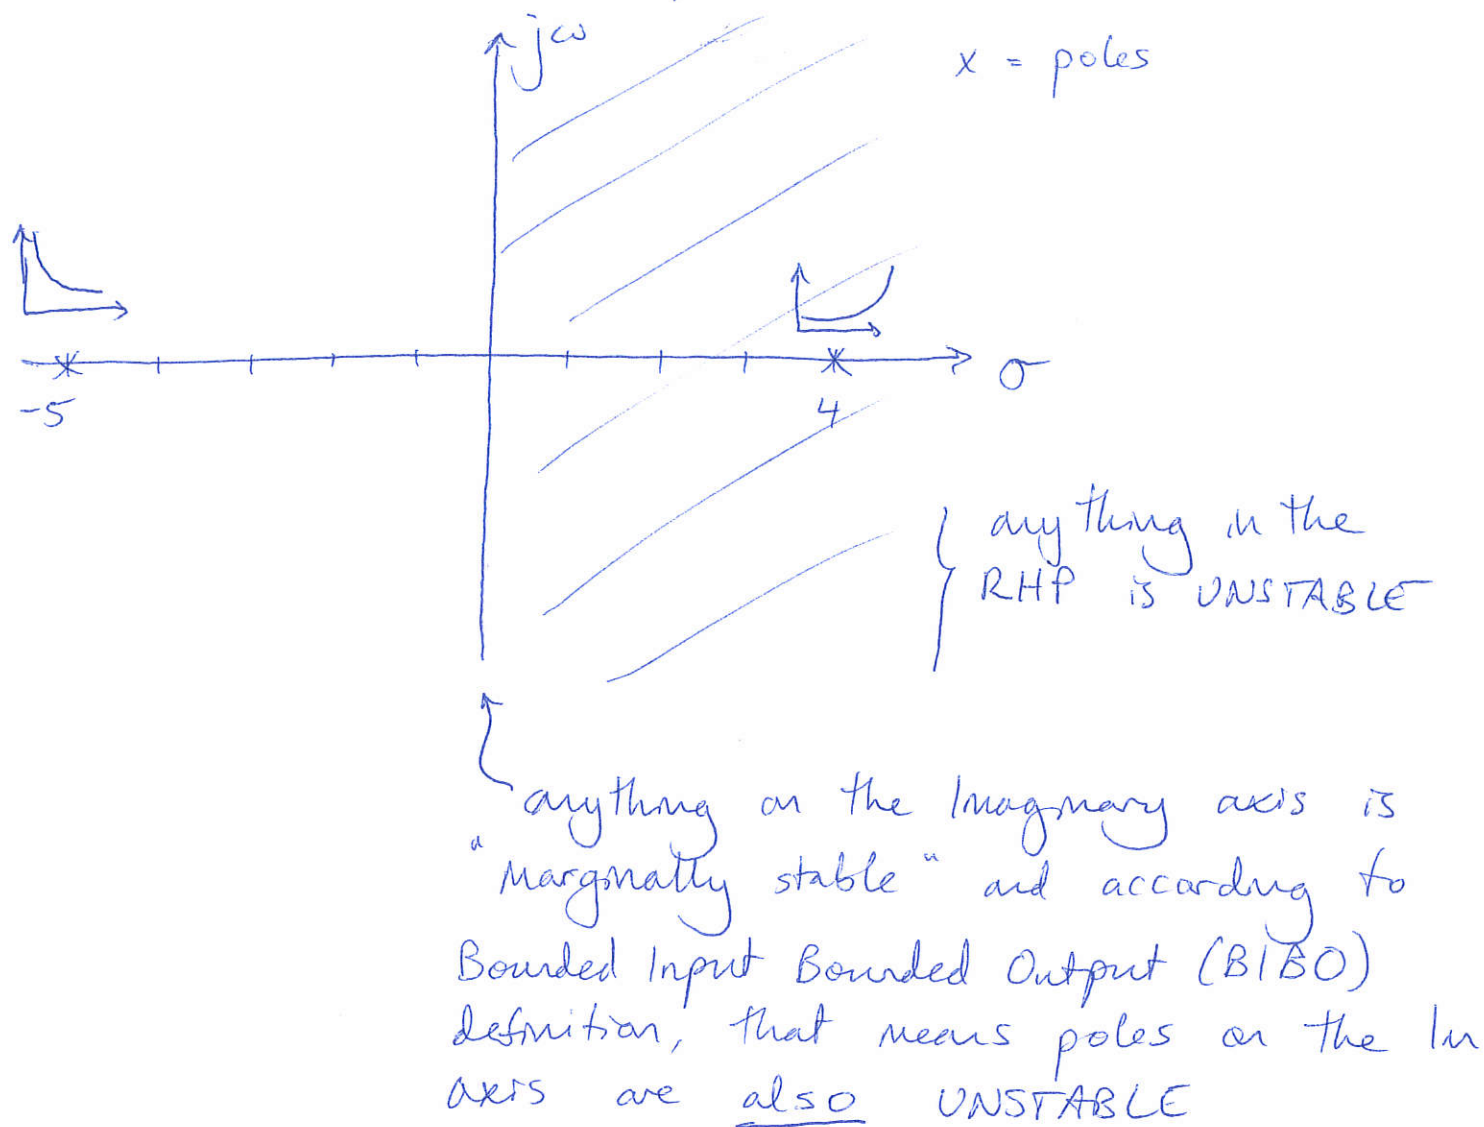 jω
x = poles
-5
4
σ
anything in the
RHP is UNSTABLE
anything on the Imaginary axis is
"marginally stable" and according to
Bounded Input Bounded Output (BIBO)
definition, that means poles on the Im
axis are also UNSTABLE